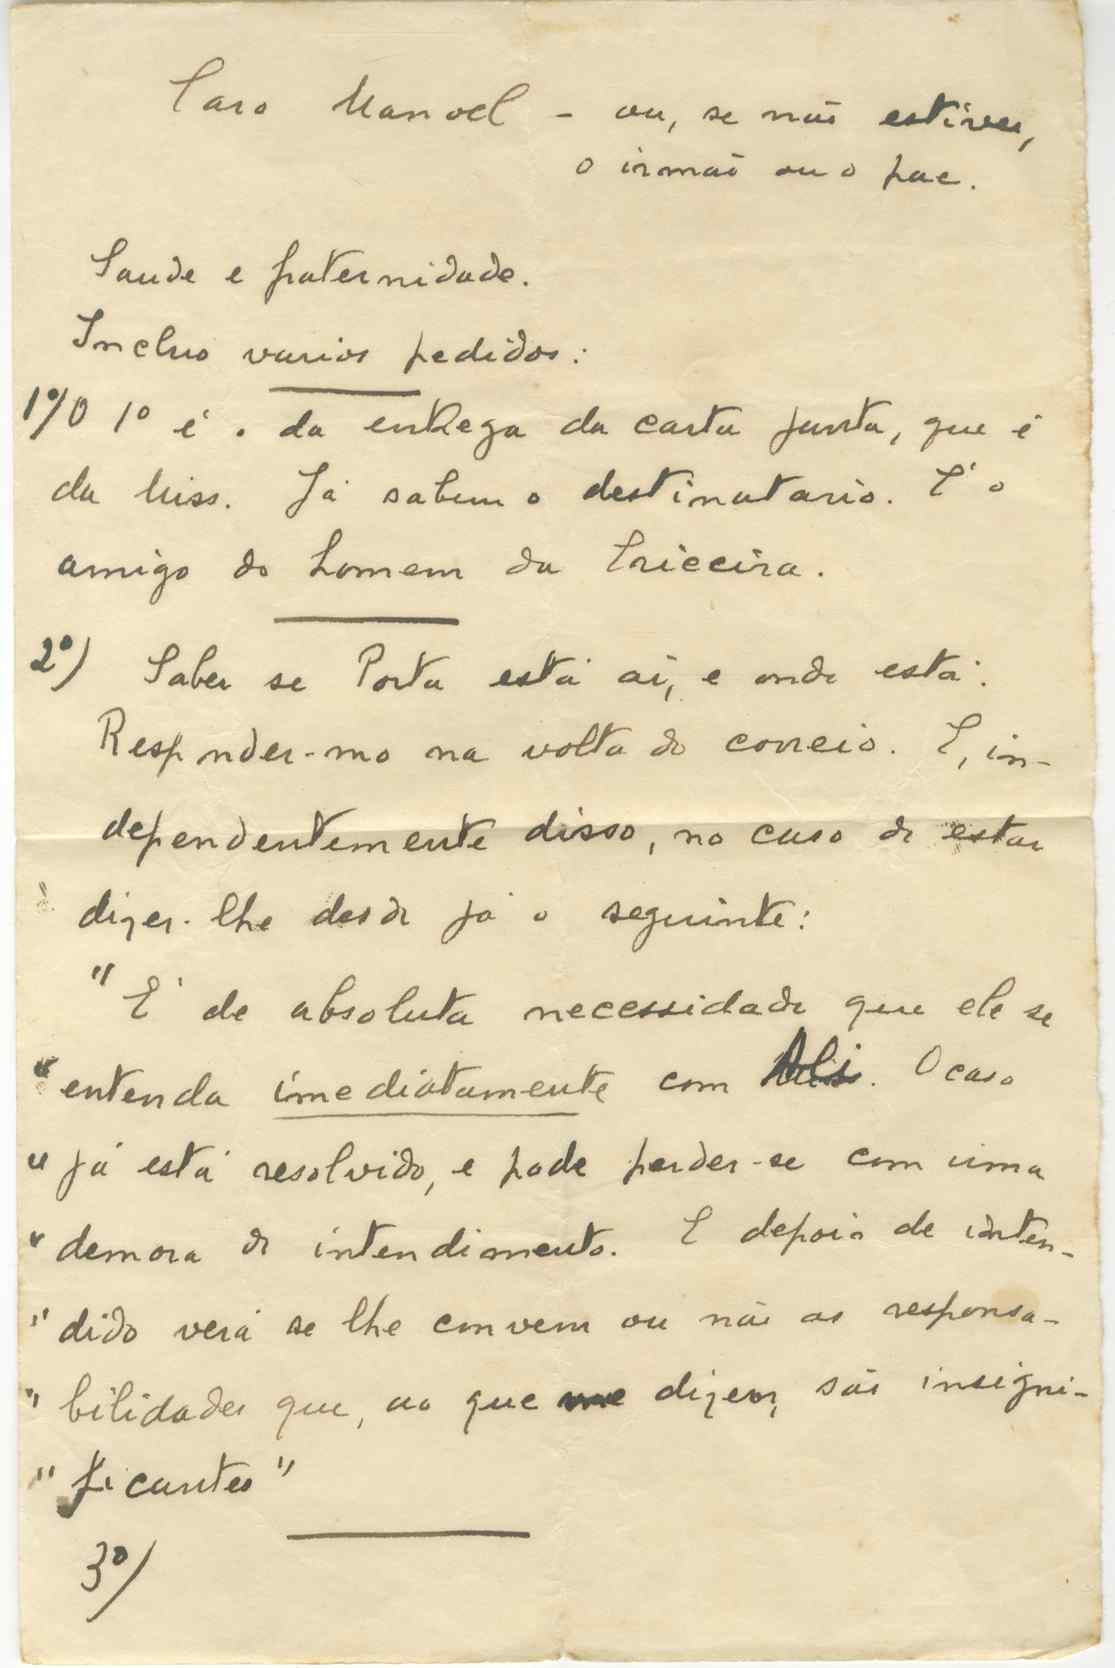 Caro Manoel - ou, se não estiver,
o irmão ou o pae.
Saude e fraternidade.
Incluo varios pedidos:
1º/ O 1º é o da entrega da carta junta, que é
da Miss. Já sabem o destinatario. É o
amigo do homem da Ericeira.
2º/ Saber se Porta está aí, e onde está.
Responder-mo na volta do correio. E, in-
dependentemente disso, no caso de estar
dizer-lhe desde já o seguinte:
"É de absoluta necessidade que ele se
"entenda imediatamente com . O caso
"já está resolvido, e pode perder-se com uma
"demora de intendimento. E depois de inten-
"dido verá se lhe convem ou não as responsa-
"bilidades que, ao que me dizem, são insigni-
"ficantes"
3º/